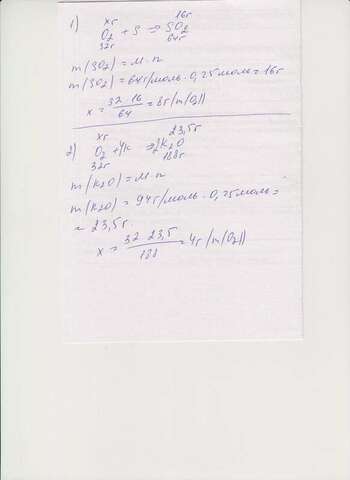 1) xг 16г
O2 + S => SO2
32г 64г
m(SO2) = M·n
m(SO2) = 64г/моль · 0,25моль = 16г
x = 32 16 / 64 = 8г (m(O2))
xг 23,5г
2) O2 + 4K => 2K2O
32г 188г
m(K2O) = M·n
m(K2O) = 94г/моль · 0,25моль =
= 23,5г.
x = 32 23,5 / 188 = 4г (m(O2))